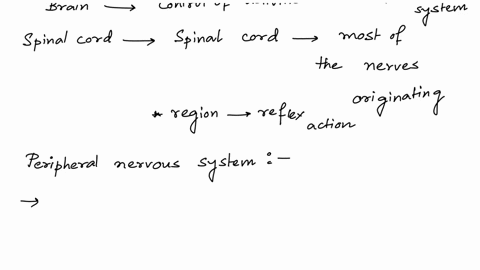 Brain → Control of
system
Spinal cord → Spinal cord → most of
the nerves
originating
* region → reflex action
Peripheral nervous system :-
→